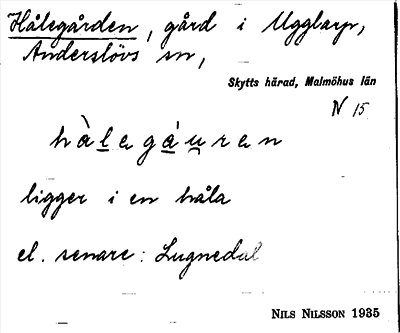 Hålegården, gård i Ugglarp,
Anderslövs sn,
Skytts härad, Malmöhus län
N 15
hàlegáuren
ligger i en håla
el. senare: Lugnedal
NILS NILSSON 1935